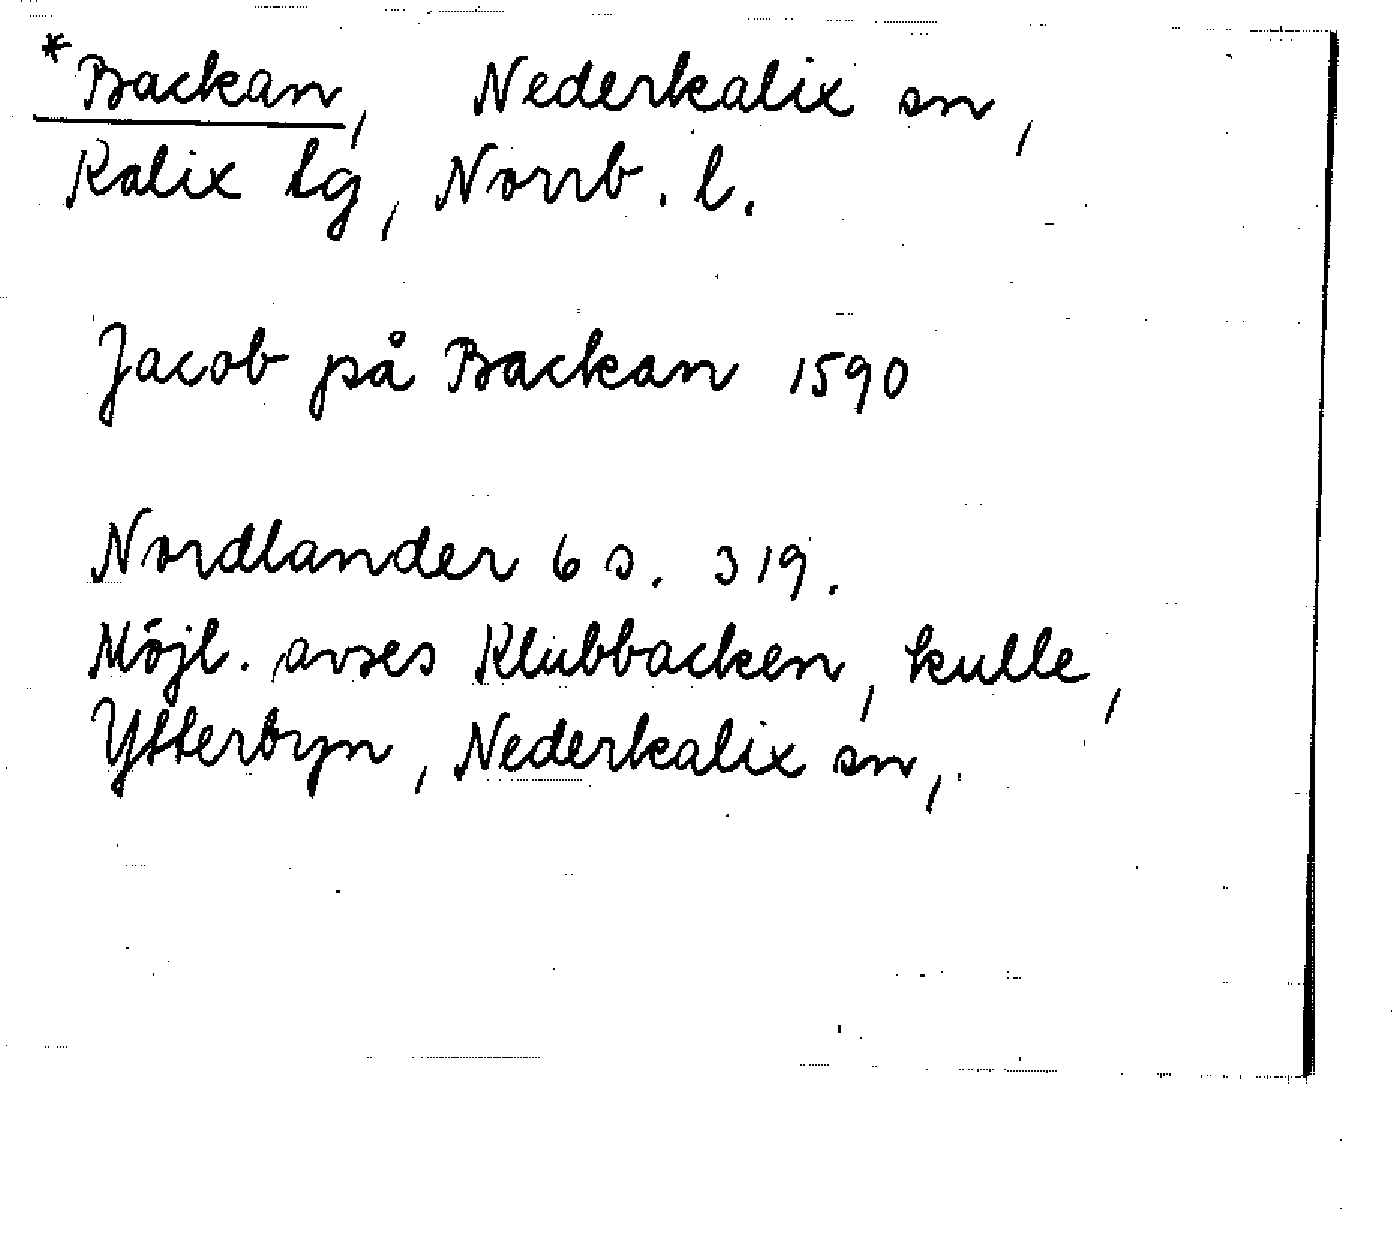 *Backan, Nederkalix sn,
Kalix tg, Norrb. l.
Jacob på Backan 1590
Nordlander 6 s. 319.
Möjl. avses Klubbacken, kulle,
Ytterbyn, Nederkalix sn,